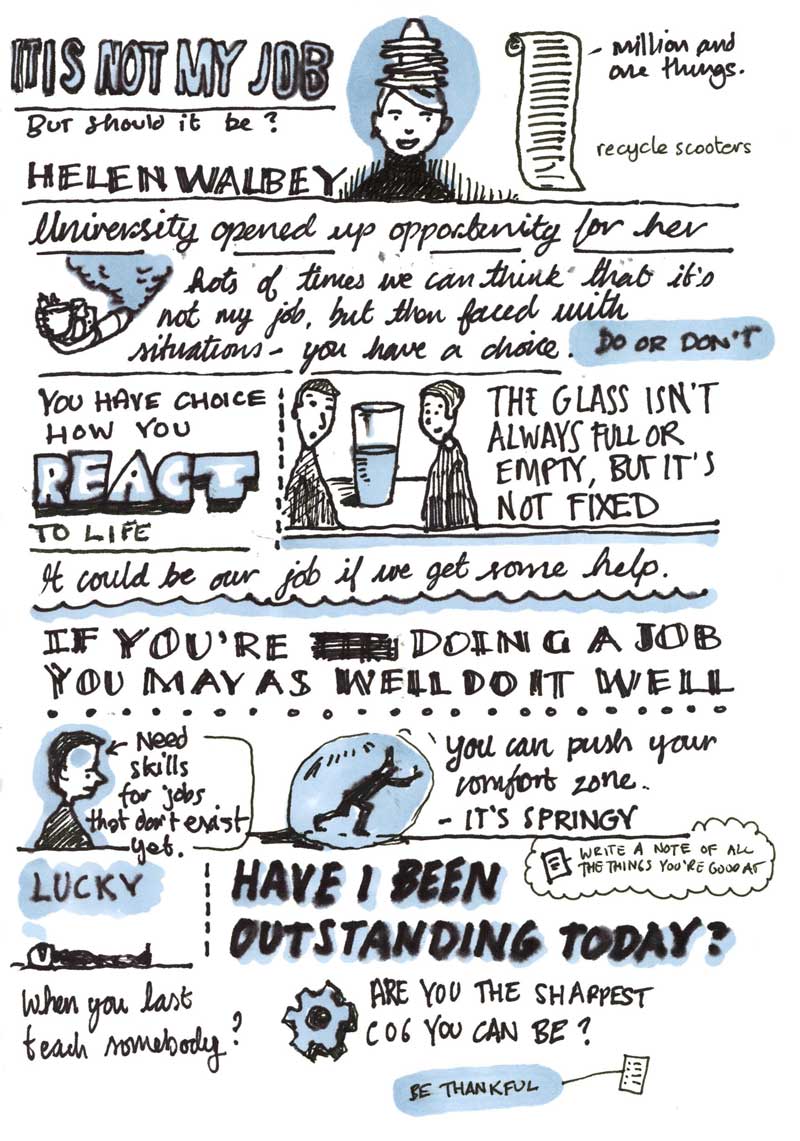 IT IS NOT MY JOB
But should it be?
HELEN WALBEY
million and
one things.
recycle scooters
University opened up opportunity for her
Lots of times we can think that it's
not my job, but then faced with
situations - you have a choice.
DO OR DON'T
YOU HAVE CHOICE
HOW YOU
REACT
TO LIFE
THE GLASS ISN'T
ALWAYS FULL OR
EMPTY, BUT IT'S
NOT FIXED
It could be our job if we get some help.
IF YOU'RE DOING A JOB
YOU MAY AS WELL DO IT WELL
Need
skills
for jobs
that don't exist
yet.
You can push your
comfort zone.
- IT'S SPRINGY
WRITE A NOTE OF ALL
THE THINGS YOU'RE GOOD AT
LUCKY
HAVE I BEEN
OUTSTANDING TODAY?
When you last
teach somebody?
ARE YOU THE SHARPEST
COG YOU CAN BE?
BE THANKFUL